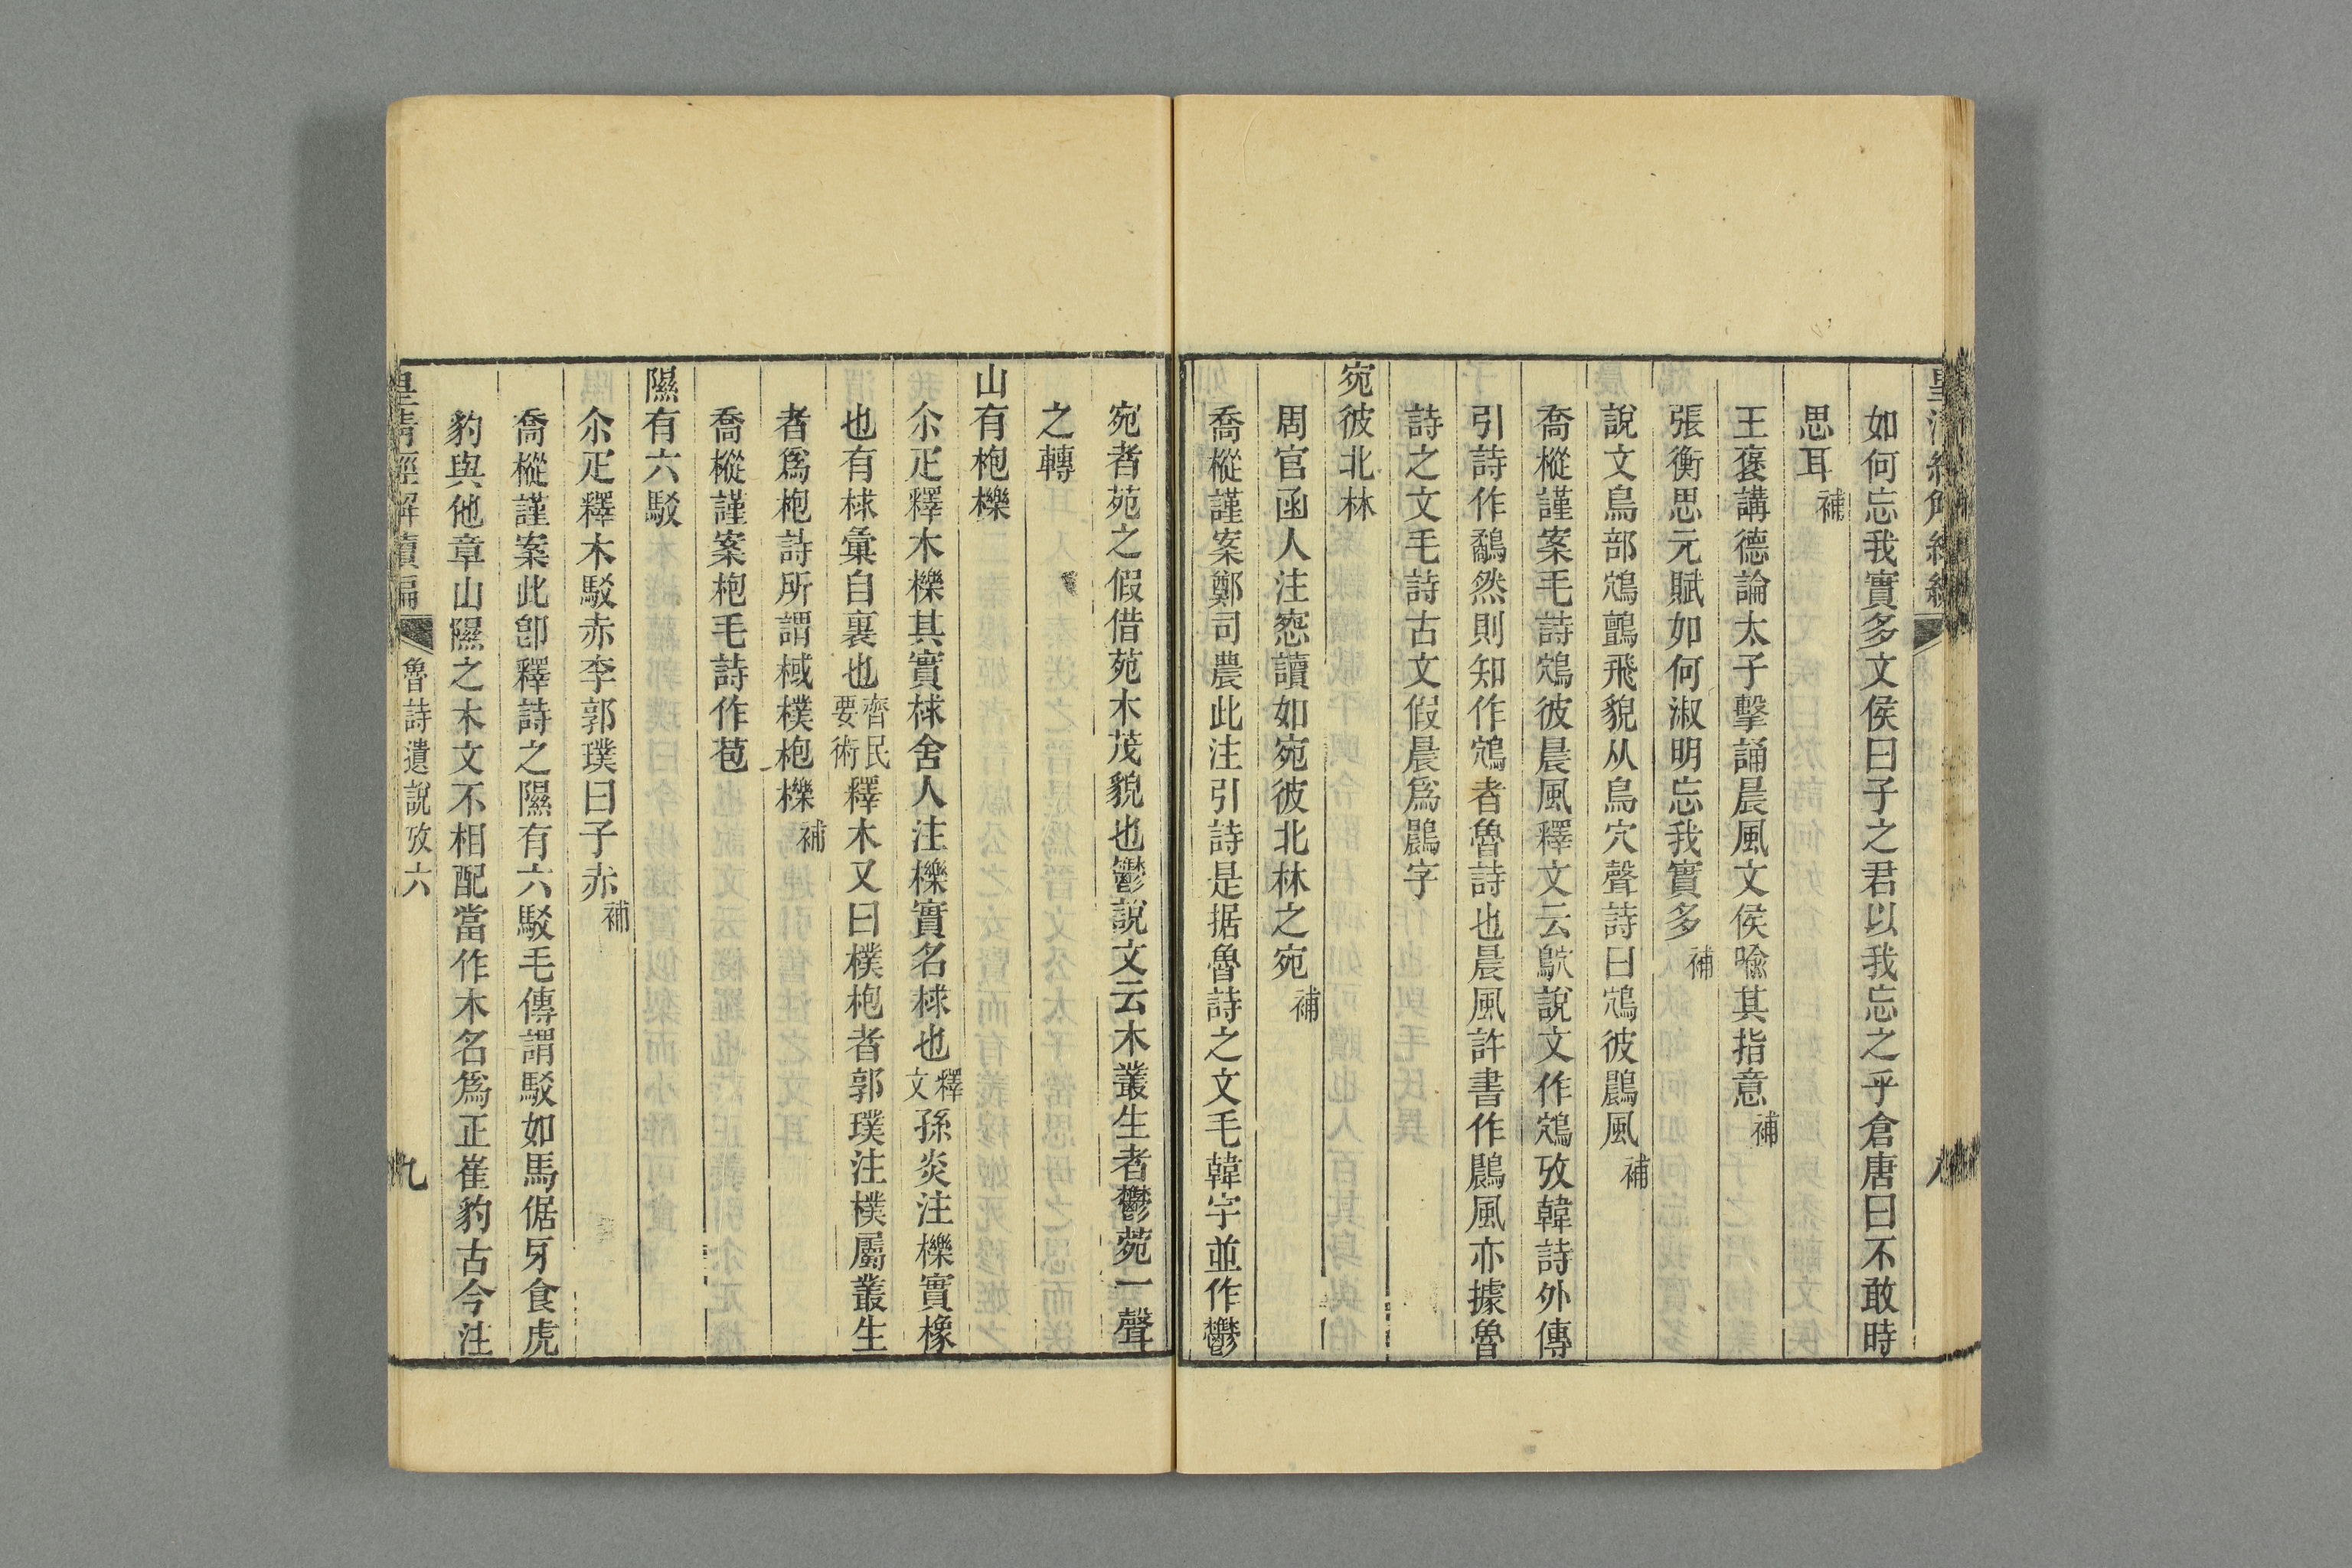 如何忘我實多文侯曰子之君以我忘之乎倉唐曰不敢時
思耳補
王褒講德論太子擊誦晨風文侯喻其指意補
張衡思元賦如何淑明忘我實多補
說文鳥部鴥鸇飛貌从鳥穴聲詩曰鴥彼鷐風補
喬樅謹案毛詩鴥彼晨風釋文云鴥說文作鴥攷韓詩外傳
引詩作鷸然則知作鴥者魯詩也晨風許書作鷐風亦據魯
詩之文毛詩古文假晨爲鷐字
宛彼北林
周官函人注惌讀如宛彼北林之宛補
喬樅謹案鄭司農此注引詩是据魯詩之文毛韓字並作鬱
宛者苑之假借苑木茂貌也鬱說文云木叢生者鬱菀一聲
之轉
山有枹櫟
尒疋釋木櫟其實梂舍人注櫟實名梂也釋文孫炎注櫟實橡
也有梂彙自裹也齊民要術釋木又曰樸枹者郭璞注樸屬叢生
者爲枹詩所謂棫樸枹櫟補
喬樅謹案枹毛詩作苞
隰有六駁
尒疋釋木駁赤李郭璞曰子赤補
喬樅謹案此卽釋詩之隰有六駁毛傳謂駁如馬倨牙食虎
豹與他章山隰之木文不相配當作木名爲正崔豹古今注
皇清經解續編 魯詩遺說攷六 九